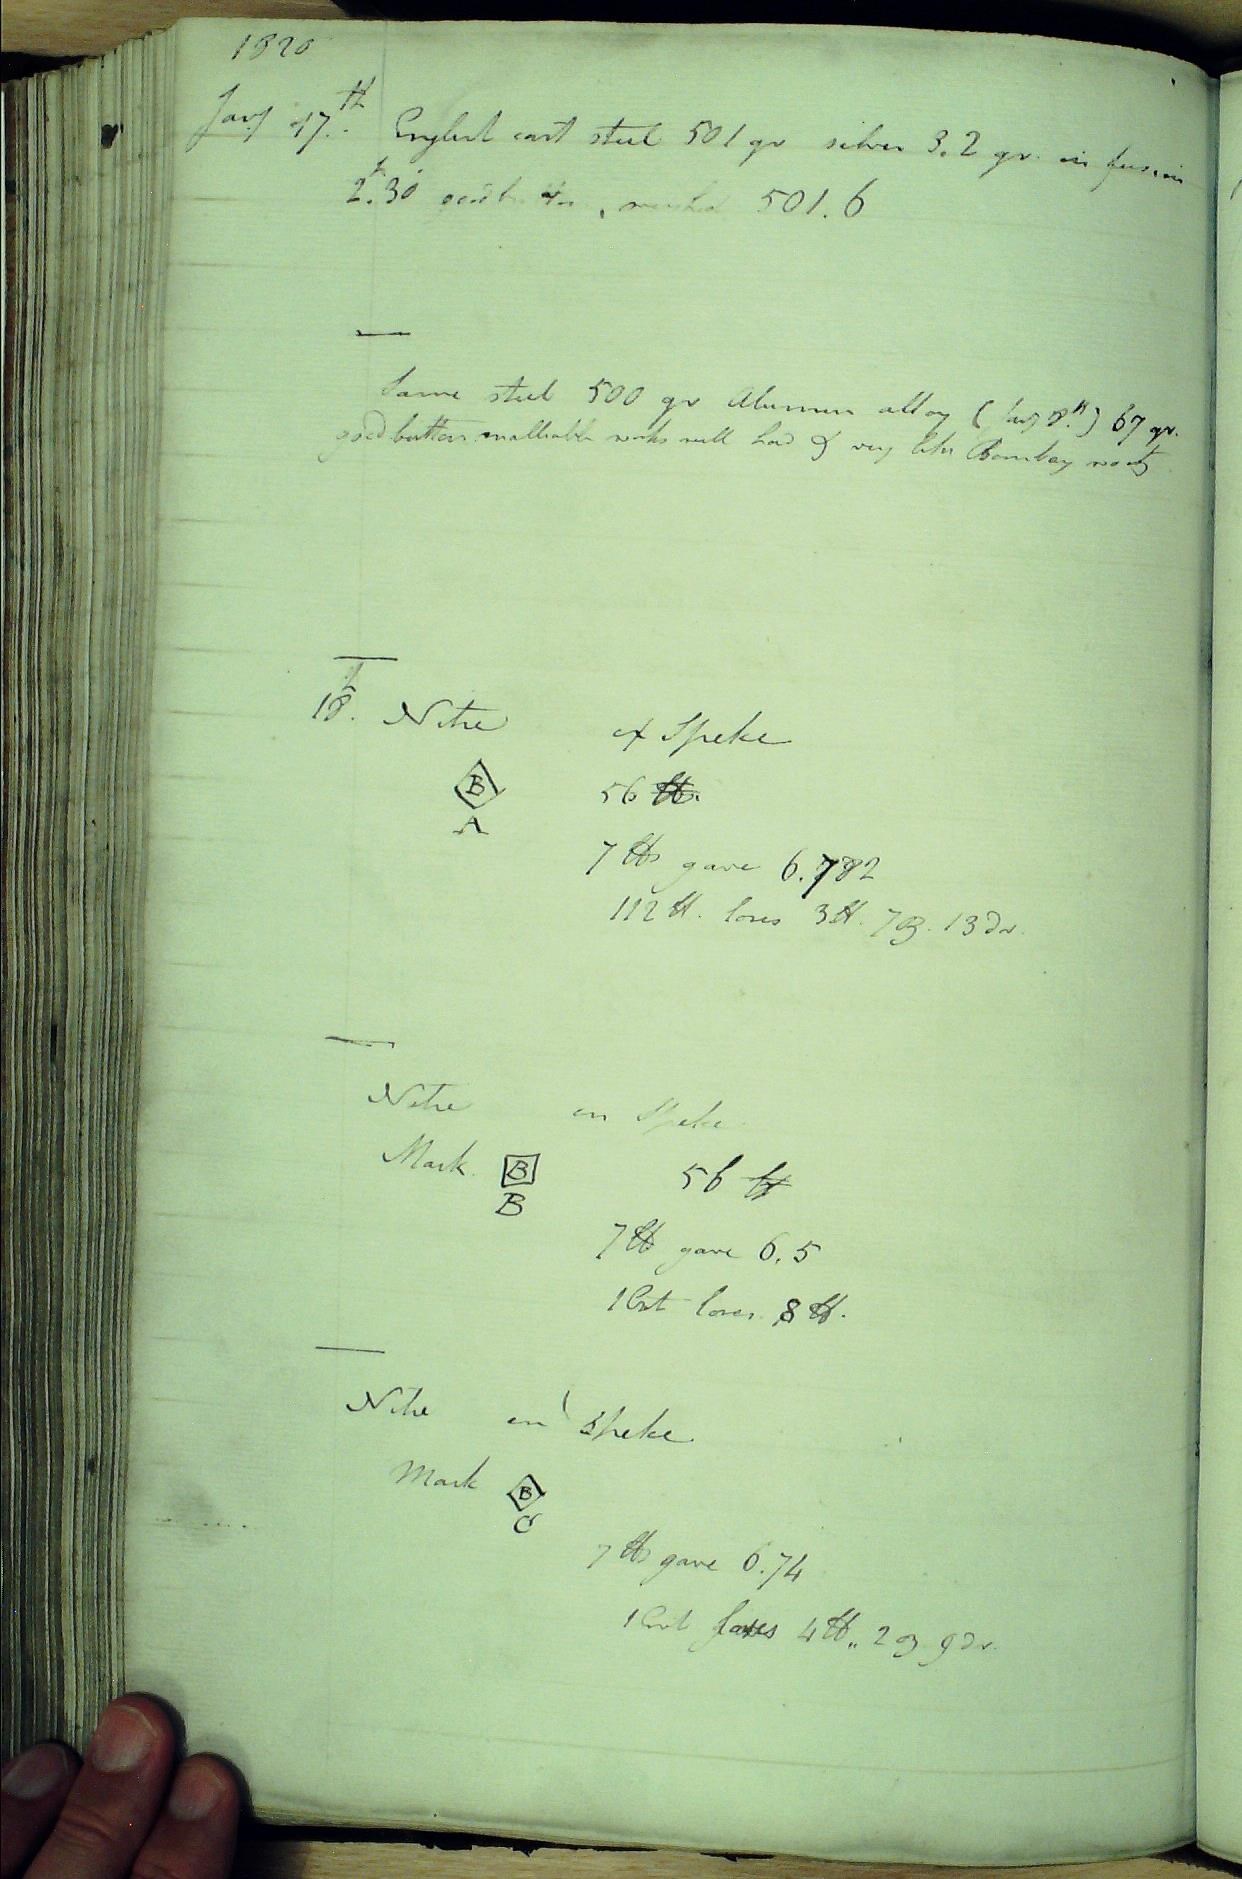 1820
Jany 17th. English cast steel 501 gr silver 3.2 gr. in fusion
2h.30' good button, weighed 501.6
Same steel 500 gr Alumine alloy (Jany 8th.) 67 gr.
good button malleable works well hard & very like Bombay wootz
18th. Nitre ex Speke
B 56 lb.
A
7 lbs gave 6.782
112 lb. loses 3 lb. 7 oz. 13 dr.
Nitre ex Speke
Mark B 56 lb
B
7 lb gave 6.5
1 Cwt loses 8 lb.
Nitre ex Speke
Mark B
C
7 lbs gave 6.74
1 Cwt loses 4 lb,, 2 oz 9 dr.